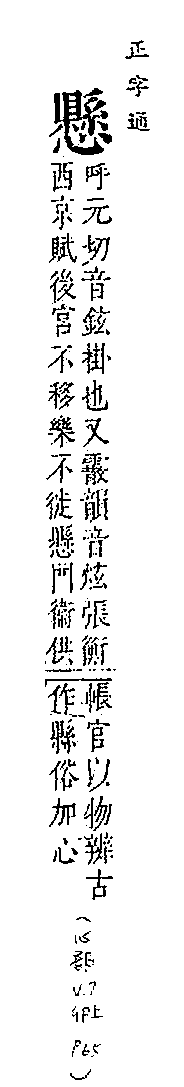 正字通
懸
呼元切音鉉掛也又霰韻音炫張衡
西京賦後宮不移樂不徙懸門衞供
帳官以物辨古
作縣俗加心
V.7
P65